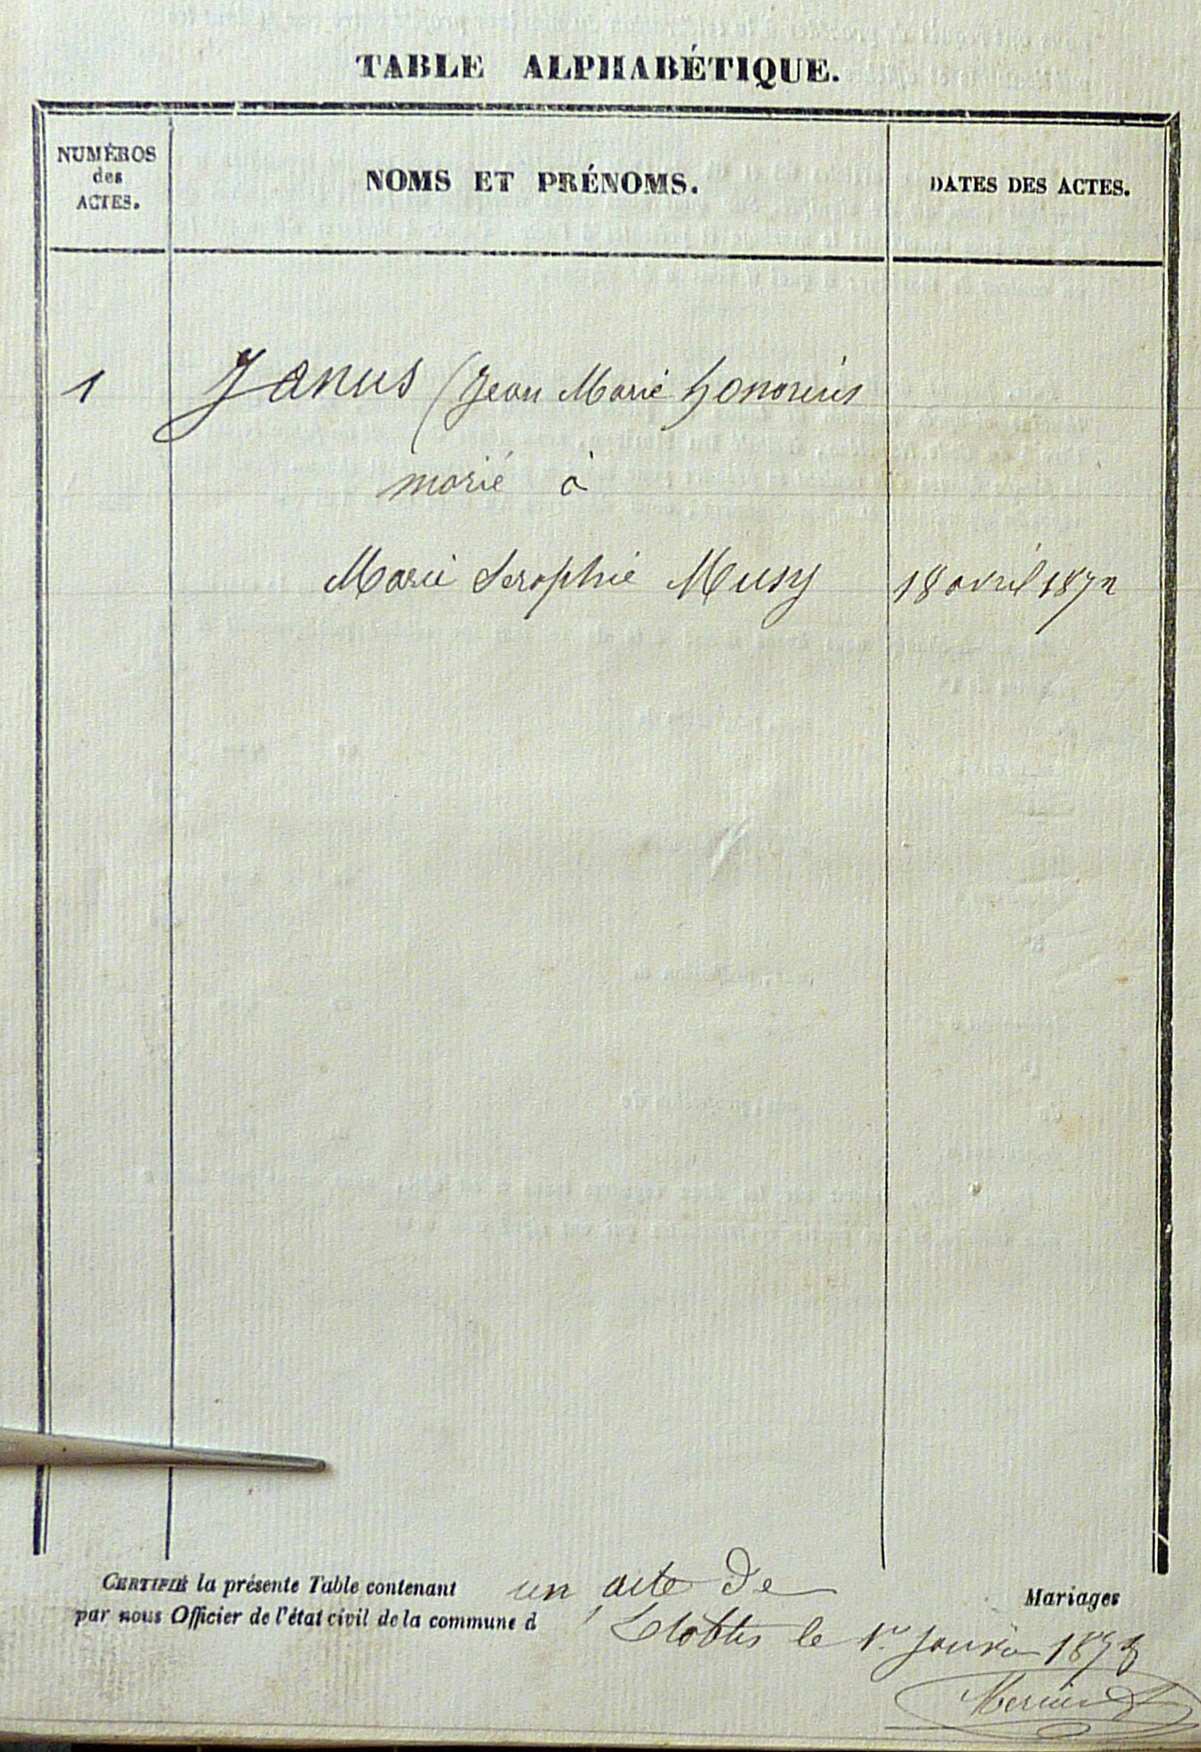 TABLE ALPHABÉTIQUE.
NUMÉROS
des
ACTES.
NOMS ET PRÉNOMS.
DATES DES ACTES.
1 Janus (Jean Marie honorius
marié à
Marie Seraphie Musy 18 avril 1872
CERTIFIÉ la présente Table contenant un acte de Mariages
par nous Officier de l'état civil de la commune d' le 1er Janvier 1873